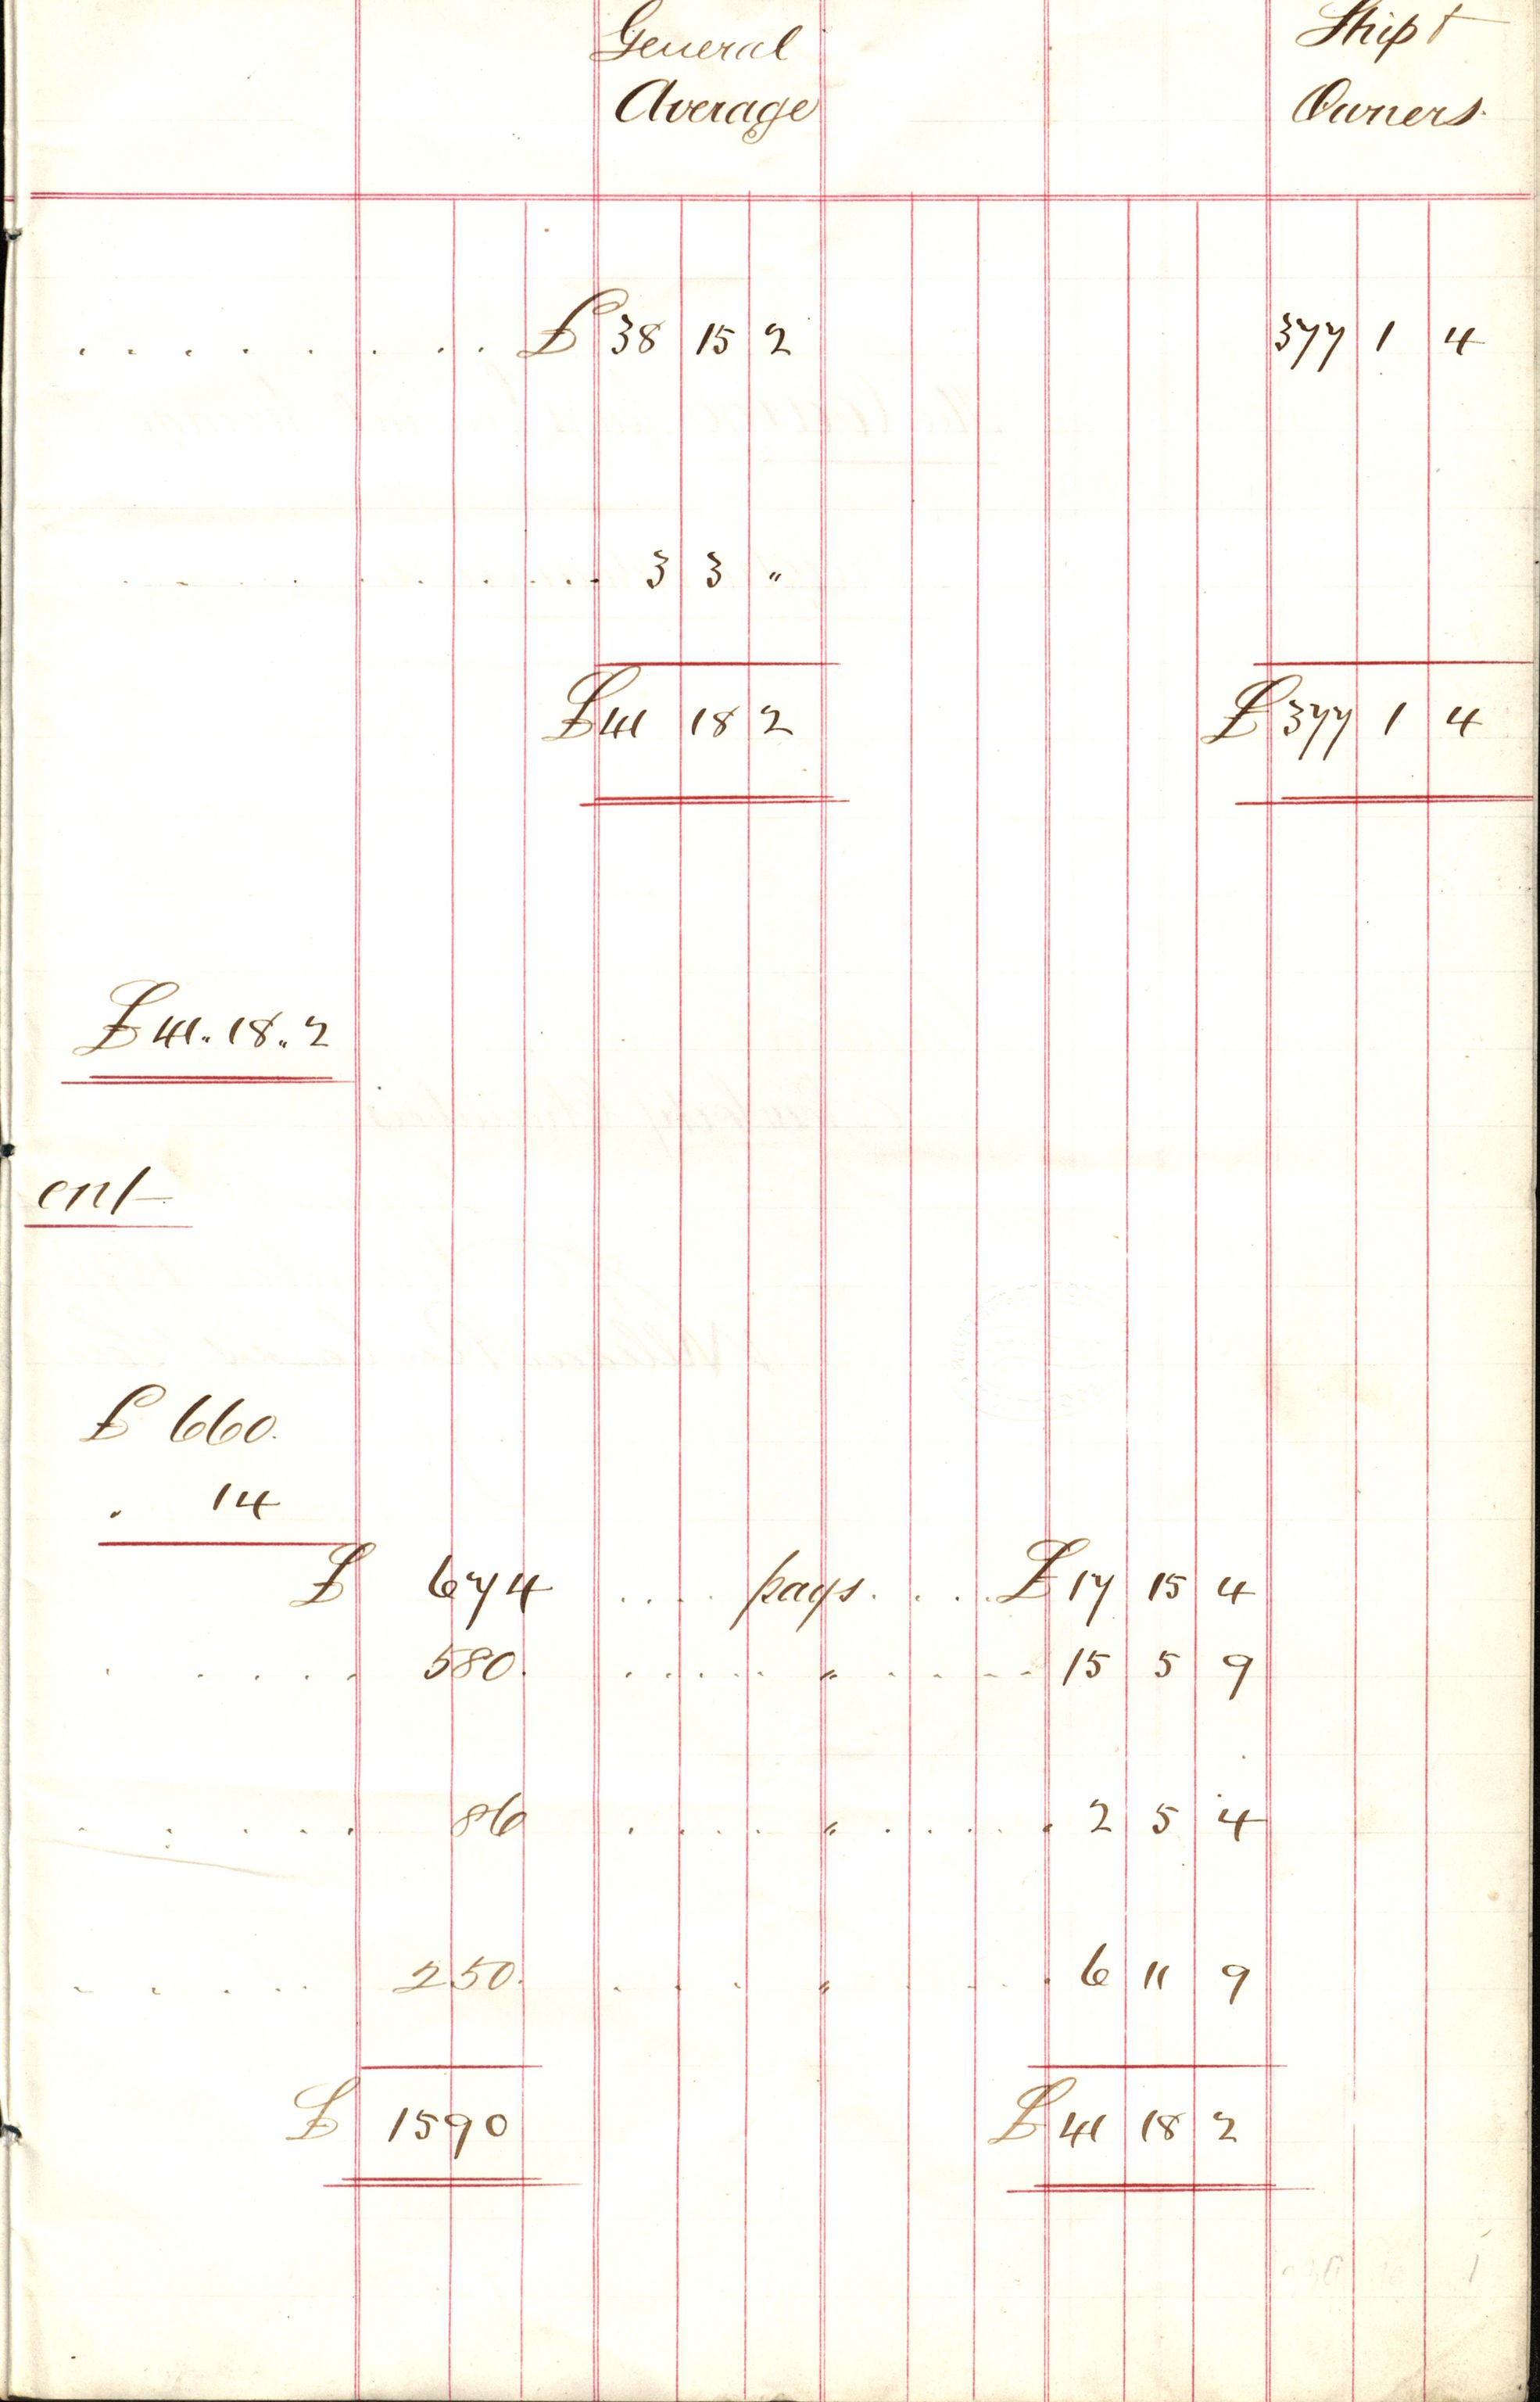 General Ship &
Average Owners.
£ 38 15 2 377 1 4
3 3 "
£ 41 18 2 £ 377 1 4
£ 41 .. 18 .. 2
ent
£ 660.
" 14
£ 674 .... pays .... £ 17 15 4
580. .... " .... 15 5 9
86 .... " .... 2 5 4
250. .... " .... 6 11 9
£ 1590 £ 41 18 2